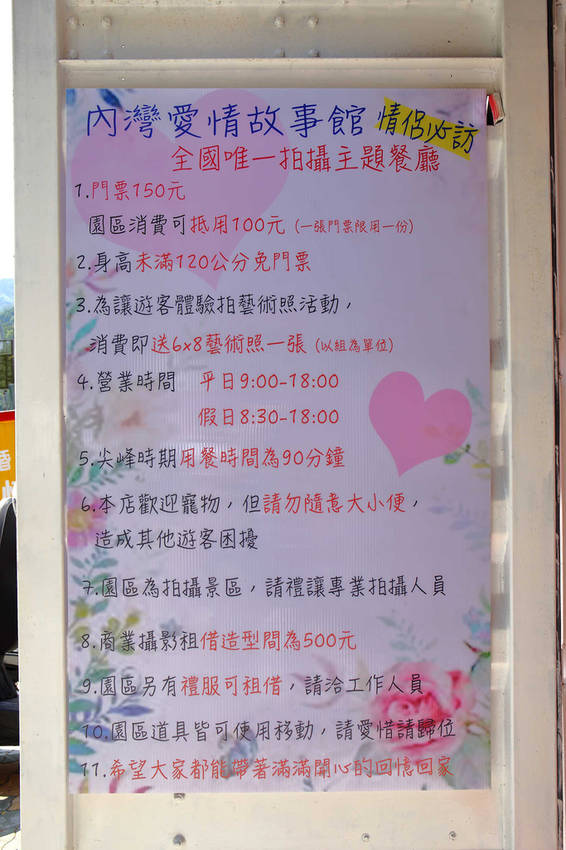 內灣愛情故事館 情侶必訪
全國唯一拍攝主題餐廳
1.門票150元
園區消費可抵用100元 (一張門票限用一份)
2.身高未滿120公分免門票
3.為讓遊客體驗拍藝術照活動，
消費即送6x8藝術照一張 (以組為單位)
4.營業時間 平日9:00-18:00
假日8:30-18:00
5.尖峰時期用餐時間為90分鐘
6.本店歡迎寵物，但請勿隨意大小便，
造成其他遊客困擾
7.園區為拍攝景區，請禮讓專業拍攝人員
8.商業攝影租借造型間為500元
9.園區另有禮服可租借，請洽工作人員
10.園區道具皆可使用移動，請愛惜請歸位
11.希望大家都能帶著滿滿開心的回憶回家